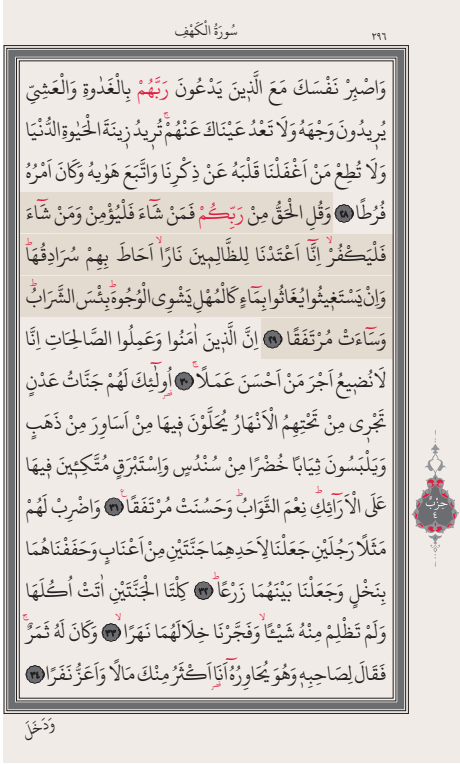 سُورَةُ الْكَهْفِ
٢٩٦
وَاصْبِرْ نَفْسَكَ مَعَ الَّذ۪ينَ يَدْعُونَ رَبَّهُمْ بِالْغَدٰوةِ وَالْعَشِيِّ
يُر۪يدُونَ وَجْهَهُ وَلَا تَعْدُ عَيْنَاكَ عَنْهُمْۚ تُر۪يدُ ز۪ينَةَ الْحَيٰوةِ الدُّنْيَا
وَلَا تُطِعْ مَنْ اَغْفَلْنَا قَلْبَهُ عَنْ ذِكْرِنَا وَاتَّبَعَ هَوٰيهُ وَكَانَ اَمْرُهُ
فُرُطًا ﴿٢٨﴾ وَقُلِ الْحَقُّ مِنْ رَبِّكُمْ فَمَنْ شَٓاءَ فَلْيُؤْمِنْ وَمَنْ شَٓاءَ
فَلْيَكْفُرْۙ اِنَّٓا اَعْتَدْنَا لِلظَّالِم۪ينَ نَارًاۙ اَحَاطَ بِهِمْ سُرَادِقُهَاۜ
وَاِنْ يَسْتَغ۪يثُوا يُغَاثُوا بِمَٓاءٍ كَالْمُهْلِ يَشْوِي الْوُجُوهَۜ بِئْسَ الشَّرَابُۜ
وَسَٓاءَتْ مُرْتَفَقًا ﴿٢٩﴾ اِنَّ الَّذ۪ينَ اٰمَنُوا وَعَمِلُوا الصَّالِحَاتِ اِنَّا
لَا نُض۪يعُ اَجْرَ مَنْ اَحْسَنَ عَمَلًاۚ ﴿٣٠﴾ اُو۬لٰٓئِكَ لَهُمْ جَنَّاتُ عَدْنٍ
تَجْر۪ي مِنْ تَحْتِهِمُ الْاَنْهَارُ يُحَلَّوْنَ ف۪يهَا مِنْ اَسَاوِرَ مِنْ ذَهَبٍ
وَيَلْبَسُونَ ثِيَابًا خُضْرًا مِنْ سُنْدُسٍ وَاِسْتَبْرَقٍ مُتَّكِـ۪ٔينَ ف۪يهَا
عَلَى الْاَرَٓائِكِۜ نِعْمَ الثَّوَابُۜ وَحَسُنَتْ مُرْتَفَقًا۟ ﴿٣١﴾ وَاضْرِبْ لَهُمْ
مَثَلًا رَجُلَيْنِ جَعَلْنَا لِاَحَدِهِمَا جَنَّتَيْنِ مِنْ اَعْنَابٍ وَحَفَفْنَاهُمَا
بِنَخْلٍ وَجَعَلْنَا بَيْنَهُمَا زَرْعًاۜ ﴿٣٢﴾ كِلْتَا الْجَنَّتَيْنِ اٰتَتْ اُكُلَهَا
وَلَمْ تَظْلِمْ مِنْهُ شَيْـًٔاۙ وَفَجَّرْنَا خِلَالَهُمَا نَهَرًاۙ ﴿٣٣﴾ وَكَانَ لَهُ ثَمَرٌۚ
فَقَالَ لِصَاحِبِه۪ وَهُوَ يُحَاوِرُهُٓ اَنَا۬ اَكْثَرُ مِنْكَ مَالًا وَاَعَزُّ نَفَرًا ﴿٣٤﴾
حزْب
٤
وَدَخَلَ